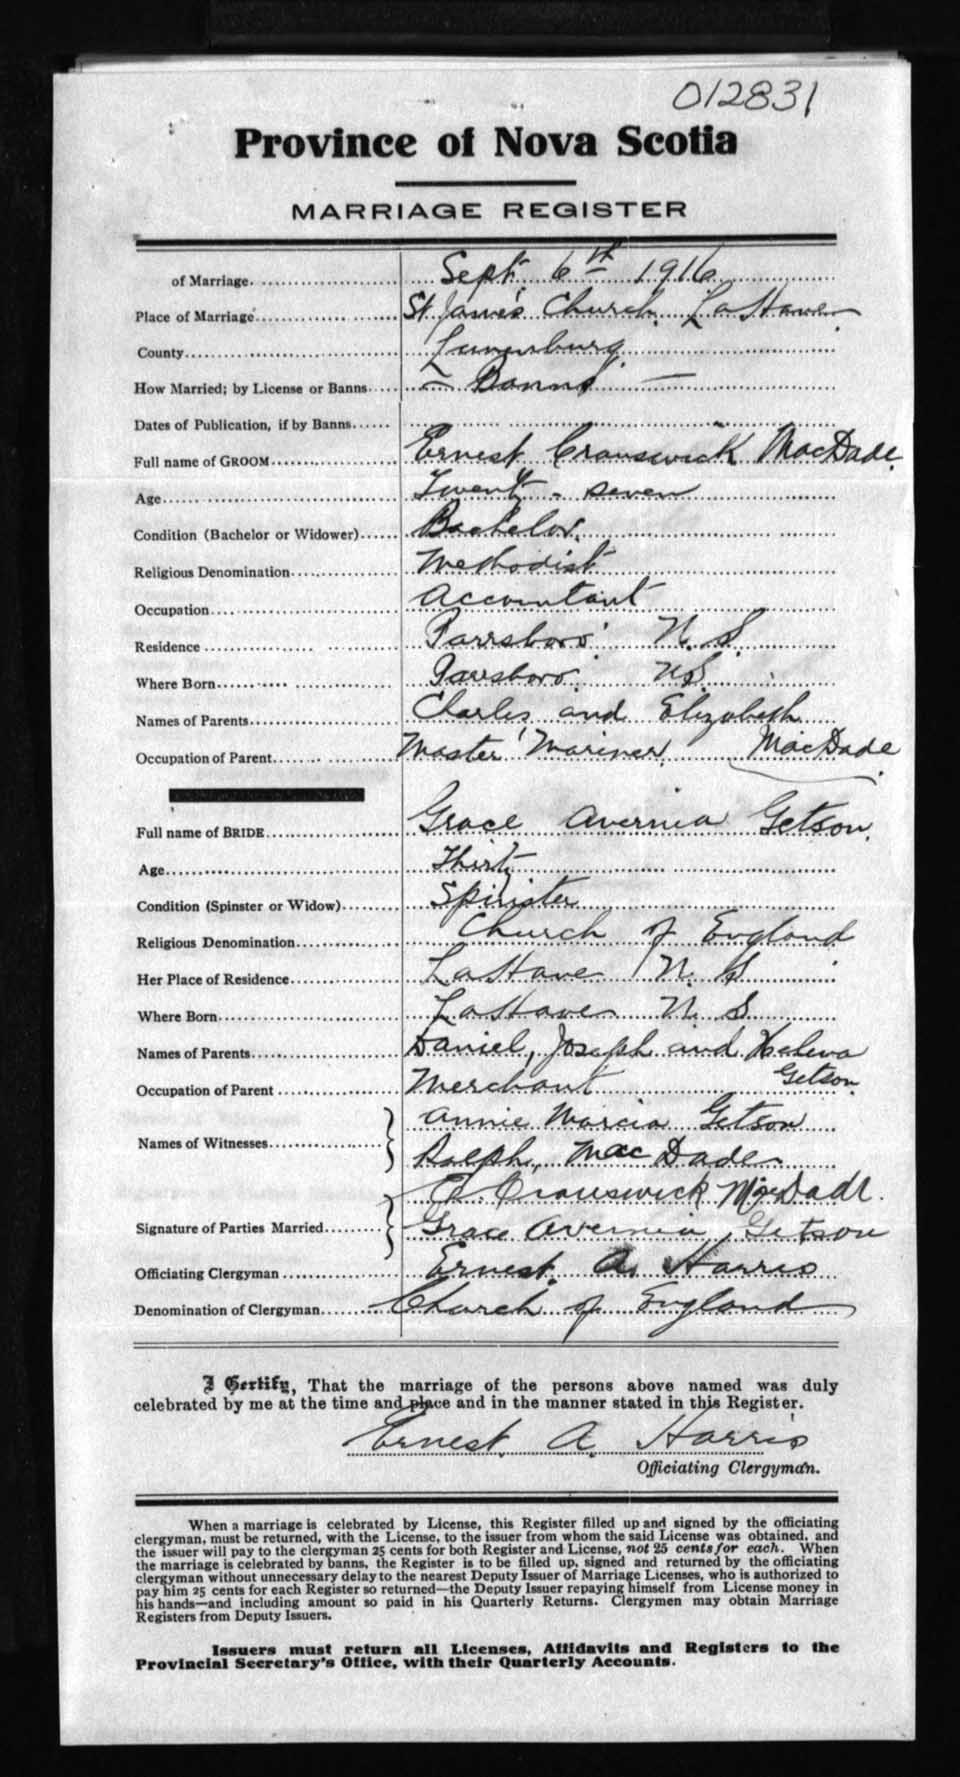 012831
Province of Nova Scotia
MARRIAGE REGISTER
of Marriage. Sept. 6th 1916
Place of Marriage St. James's Church. LaHave
County Lunenburg
How Married; by License or Banns – Banns –
Dates of Publication, if by Banns
Full name of GROOM Ernest Cranswick MacDade.
Age Twenty-seven
Condition (Bachelor or Widower) Bachelor.
Religious Denomination Methodist
Occupation Accountant
Residence Parrsboro N.S.
Where Born Parrsboro. N.S.
Names of Parents Charles and Elizabeth
Occupation of Parent Master Mariner. MacDade
Full name of BRIDE Grace Avernia Getson.
Age Thirty
Condition (Spinster or Widow) Spinster
Religious Denomination Church of England
Her Place of Residence LaHave N. S
Where Born LaHave N. S
Names of Parents Daniel, Joseph and Helena
Getson.
Occupation of Parent Merchant
Names of Witnesses Annie Marcia Getson
Ralph, MacDade
E. Cranswick MacDade.
Signature of Parties Married Grace Avernia Getson
Officiating Clergyman Ernest. A. Harris
Denomination of Clergyman Church of England
I Certify, That the marriage of the persons above named was duly
celebrated by me at the time and place and in the manner stated in this Register.
Ernest. A. Harris
Officiating Clergyman.
When a marriage is celebrated by License, this Register filled up and signed by the officiating
clergyman, must be returned, with the License, to the issuer from whom the said License was obtained, and
the issuer will pay to the clergyman 25 cents for both Register and License, not 25 cents for each. When
the marriage is celebrated by banns, the Register is to be filled up, signed and returned by the officiating
clergyman without unnecessary delay to the nearest Deputy Issuer of Marriage Licenses, who is authorized to
pay him 25 cents for each Register so returned—the Deputy Issuer repaying himself from License money in
his hands—and including amount so paid in his Quarterly Returns. Clergymen may obtain Marriage
Registers from Deputy Issuers.
Issuers must return all Licenses, Affidavits and Registers to the
Provincial Secretary's Office, with their Quarterly Accounts.